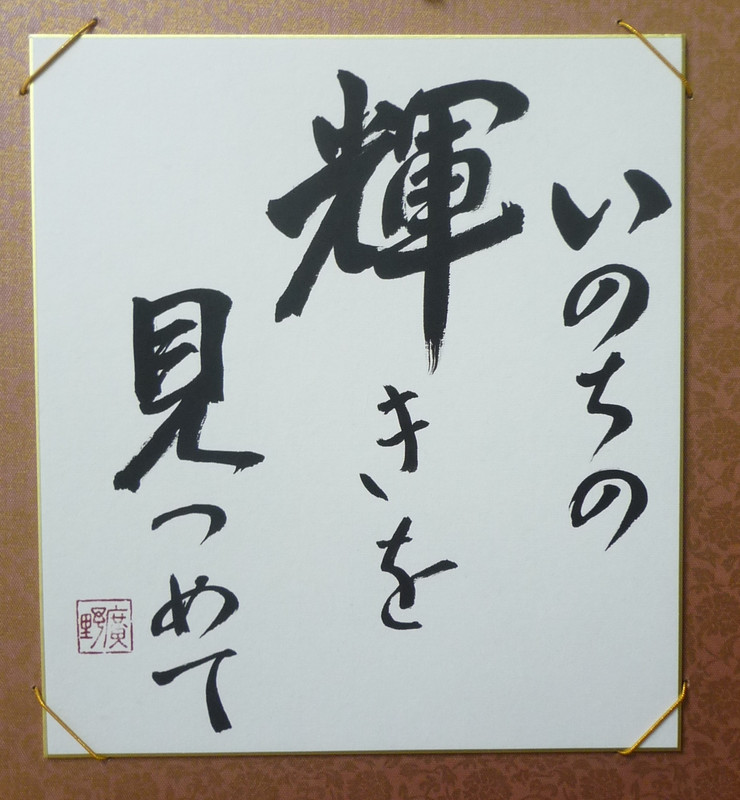 いのちの
輝きを
見つめて
廣野